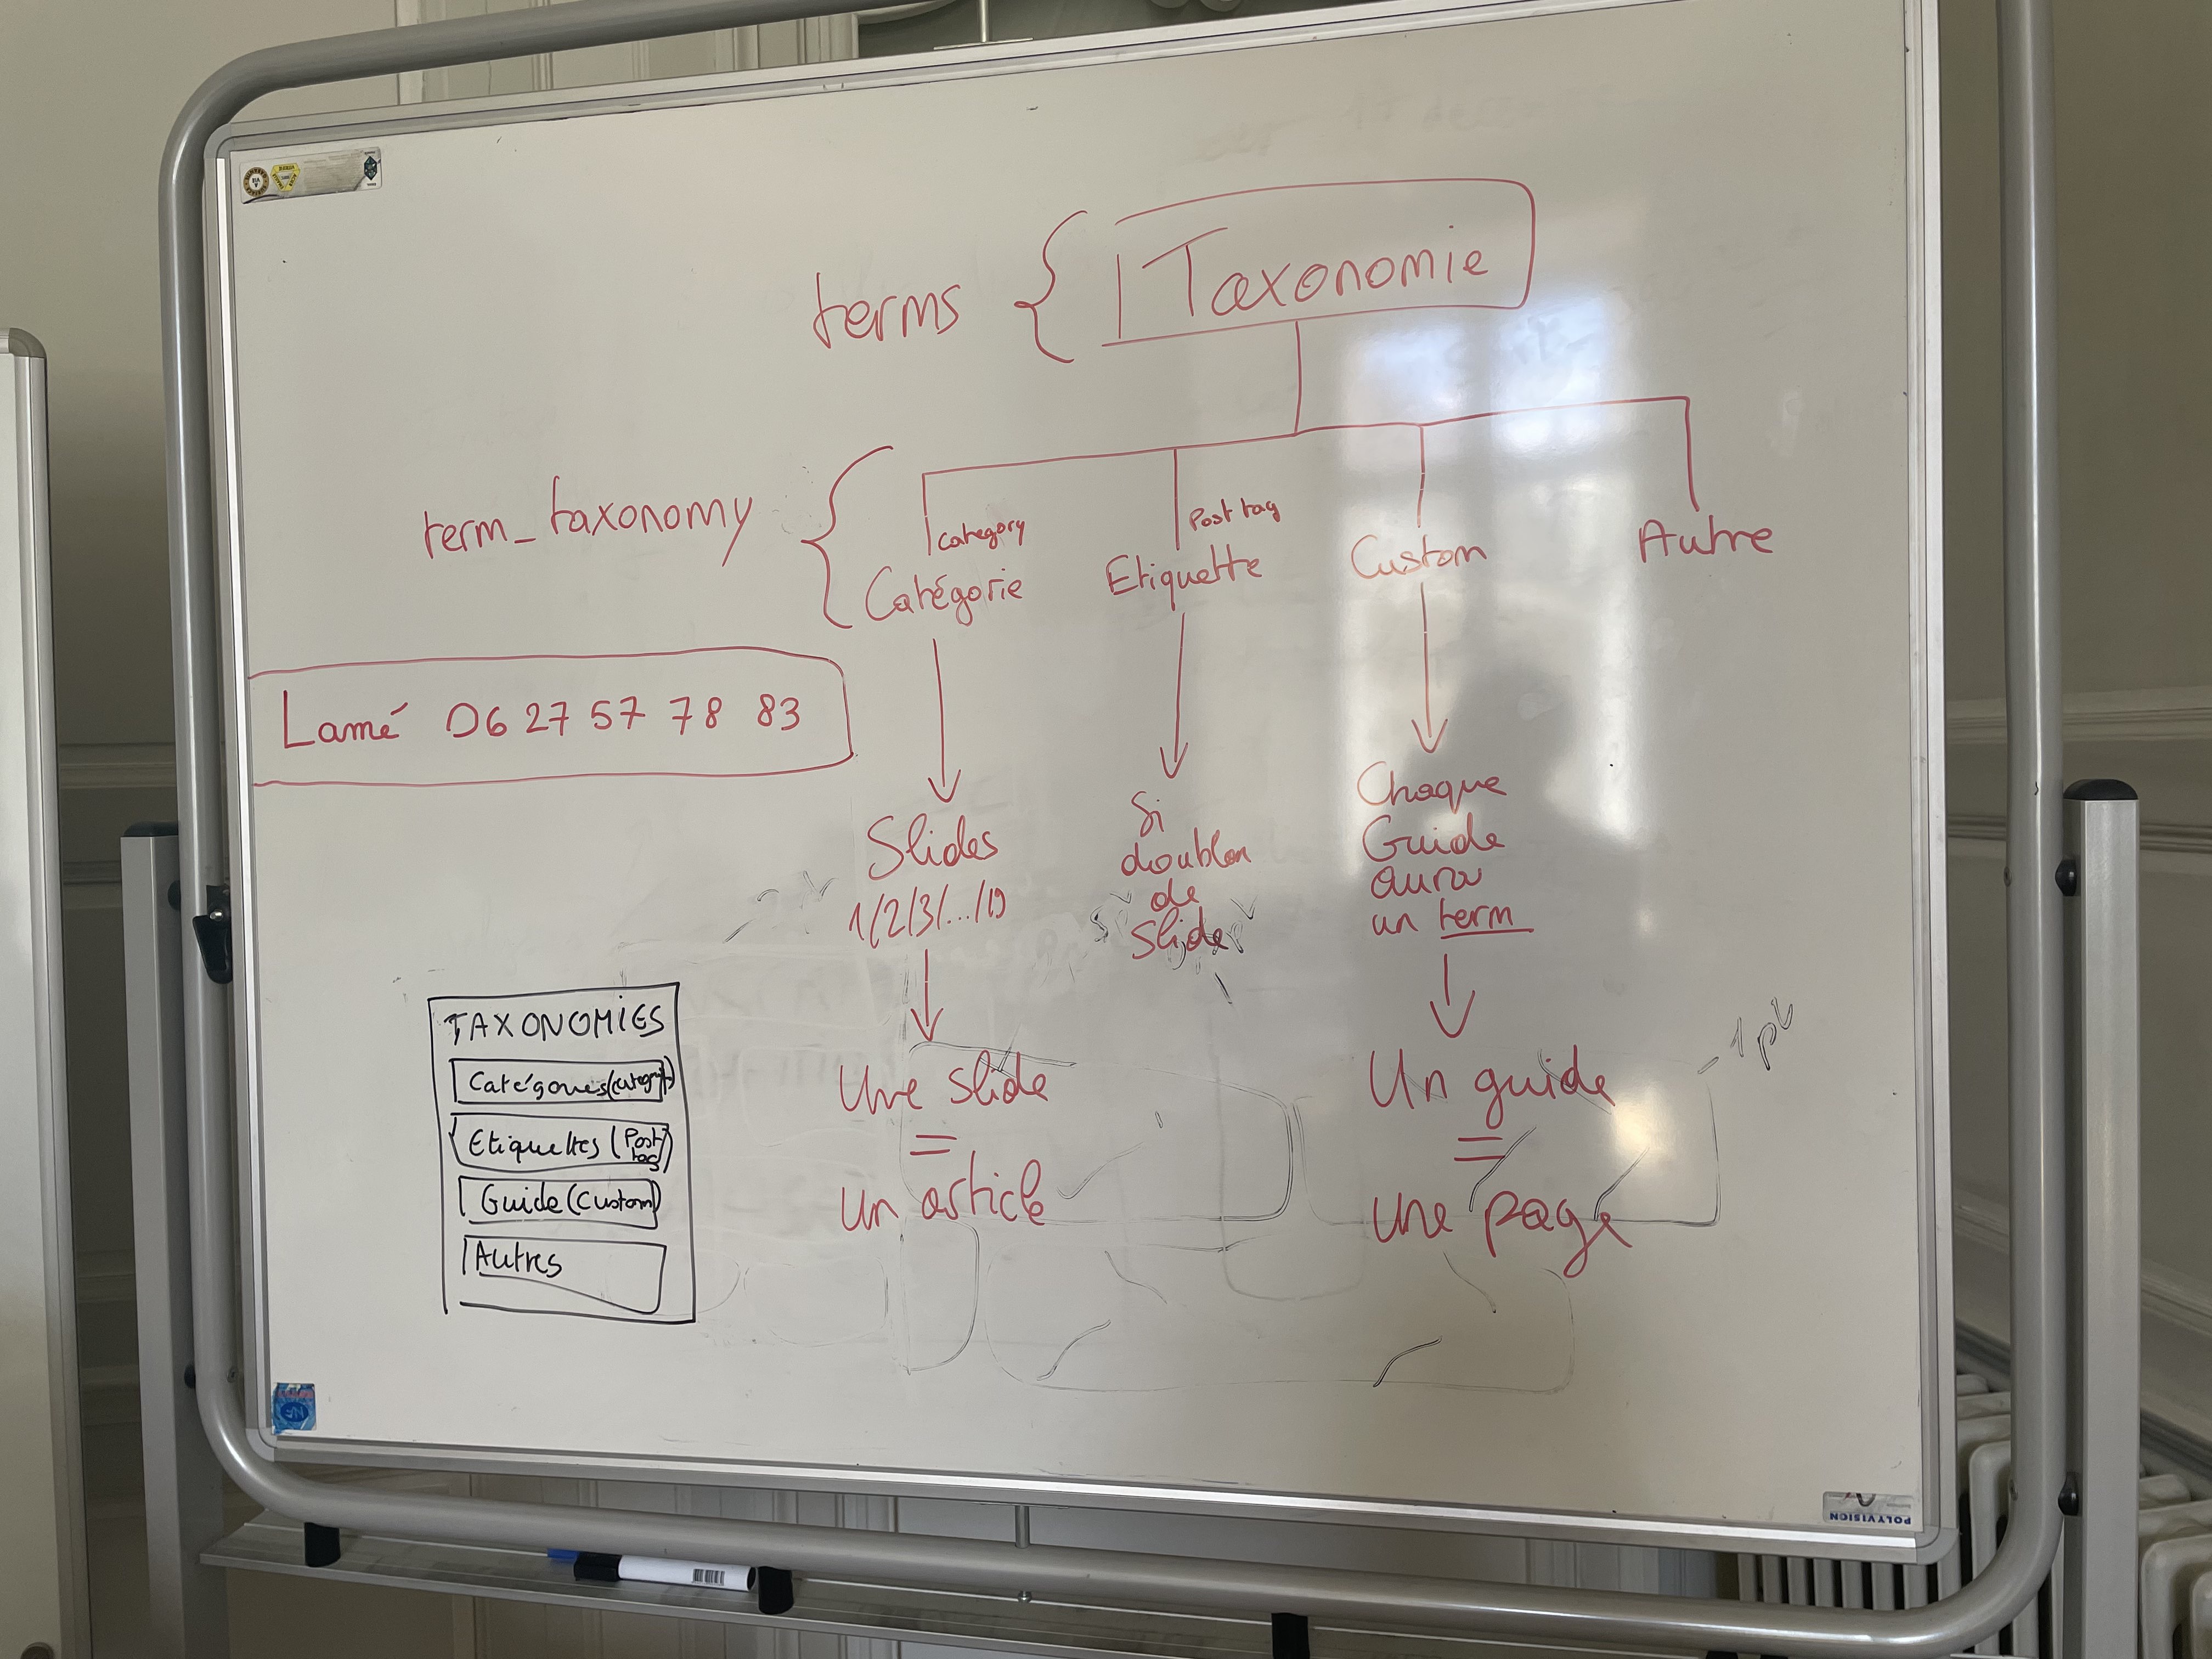 terms
Taxonomie
term_taxonomy
category
Catégorie
Post tag
Etiquette
Custom
Autre
Lamé 06 27 57 78 83
Slides
1/2/3/.../19
Une slide
=
un article
Si
doublon
de
slide
Chaque
Guide
aura
un term
Un guide
=
une page
1 pt
TAXONOMIES
Catégories (category)
Etiquettes (Post
tag)
Guide (Custom)
Autres
POLYVISION